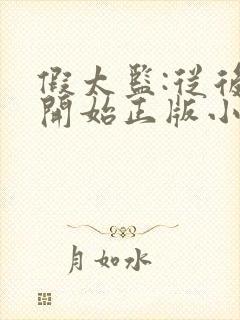 假太監:從後
開始正版小
月如水